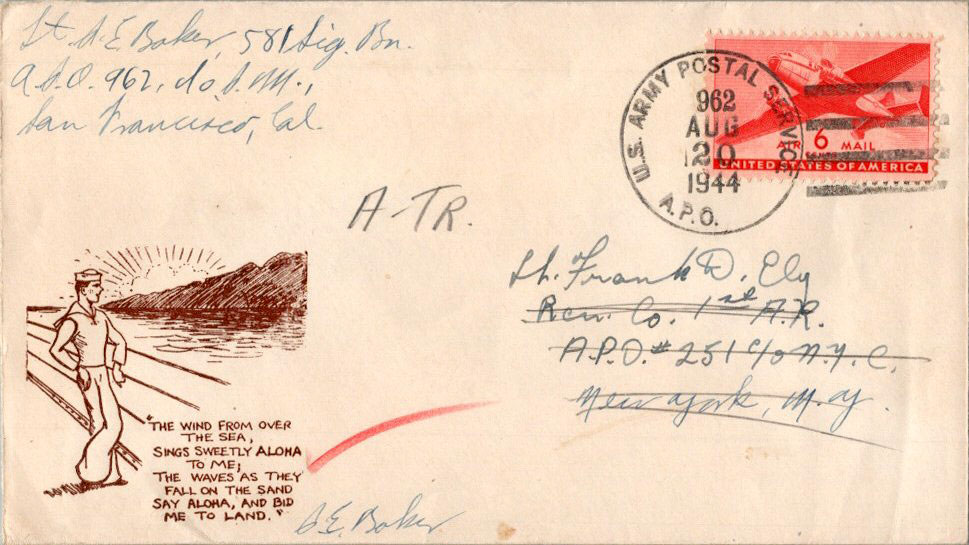 Lt. A. E. Baker, 581 Sig. Bn.
A.P.O. 962, c/o P.M.,
San Francisco, Cal.
U.S. ARMY POSTAL SERVICE
962
AUG
20
1944
A.P.O.
AIR 6 MAIL
CENTS
UNITED STATES OF AMERICA
A-TR.
Lt. Frank D. Ely
Rcn. Co. 1st A.R.
A.P.O. # 251 c/o N.Y.C.
New York, N.Y.
"THE WIND FROM OVER
THE SEA,
SINGS SWEETLY ALOHA
TO ME;
THE WAVES AS THEY
FALL ON THE SAND
SAY ALOHA, AND BID
ME TO LAND."
A.E. Baker